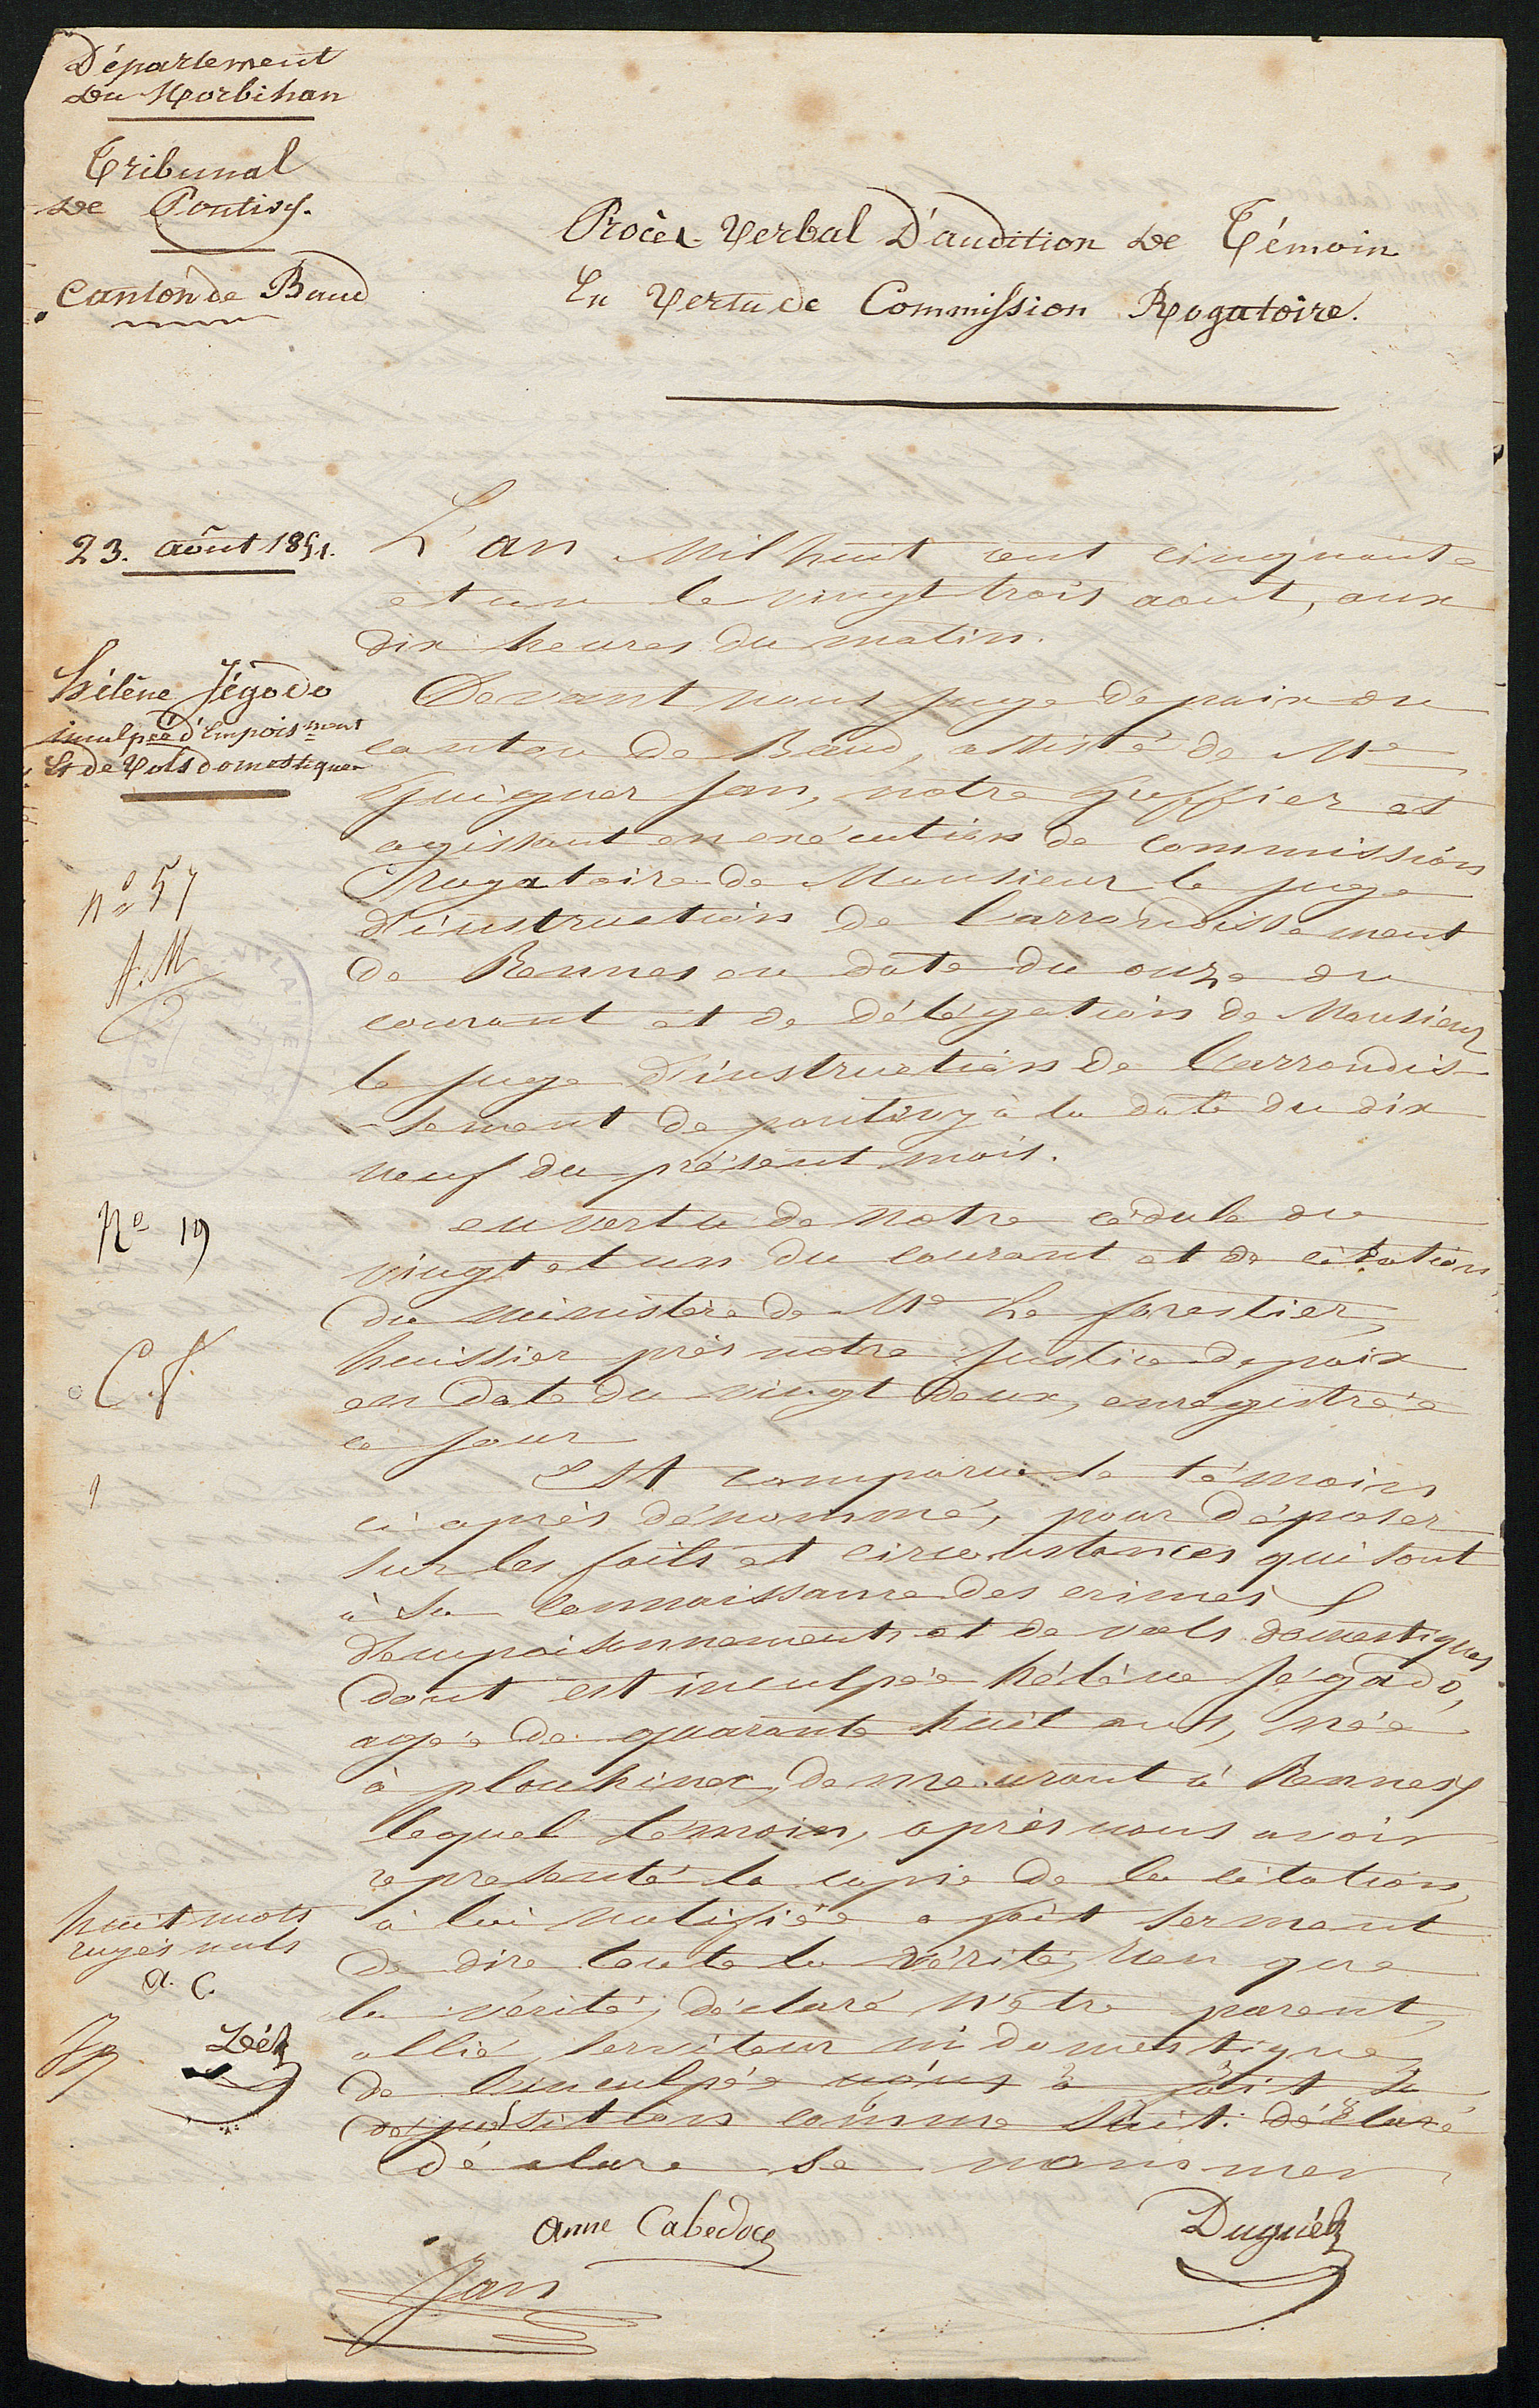 Département
du Morbihan
Tribunal
de Pontivy.
Canton de Baud
Procès-Verbal D'audition de Témoin
En Vertu de Commission Rogatoire.
23. août 1851.
L'an Mil huit cent cinquante
et un le vingt trois aout, aux
dix heures du matin.
hélène Jégado
inculpée d'Empoisment
Et de Vols domestiques
Devant nous juge de paix du
canton de Baud, assisté de Me
Guiguer Jan, notre greffier et
agissant en exécution de commission
Rogatoire de Monsieur le juge
d'instruction de l'arrondissement
de Rennes en date du onze du
courant et de délégation de Monsieur
le juge d'instruction de l'arrondis-
-sement de pontivy à la date du dix
neuf du présent mois.
no 57
A.M
No 19
C.f.
1
en vertu de notre cédule du
vingt et un du courant et de citation
du ministère de Me Le forestier,
huissier près notre justice de paix
en date du vingt deux, enregistrée
ce jour
Est comparu le témoin
ci après dénommé, pour déposer
sur les faits et circonstances qui sont
à sa connaissance des crimes
d'empoisonnements et de vols domestiques
dont est inculpée hélène Jégado,
agée de quarante huit ans, née
à plouhinec, demeurant à Rennes,
lequel témoin, après nous avoir
représenté la copie de la citation
à lui notifiée a fait serment
de dire toute la vérité, rien que
la vérité, déclaré n'être parent,
allié, serviteur ni domestique
de l'inculpée nous a fait sa
déposition comme suit: déclaré
déclare se nommer
huit mots
rayés nuls
a. C.
Jg
Dél
anne Cabedoce
Duguél
Jan